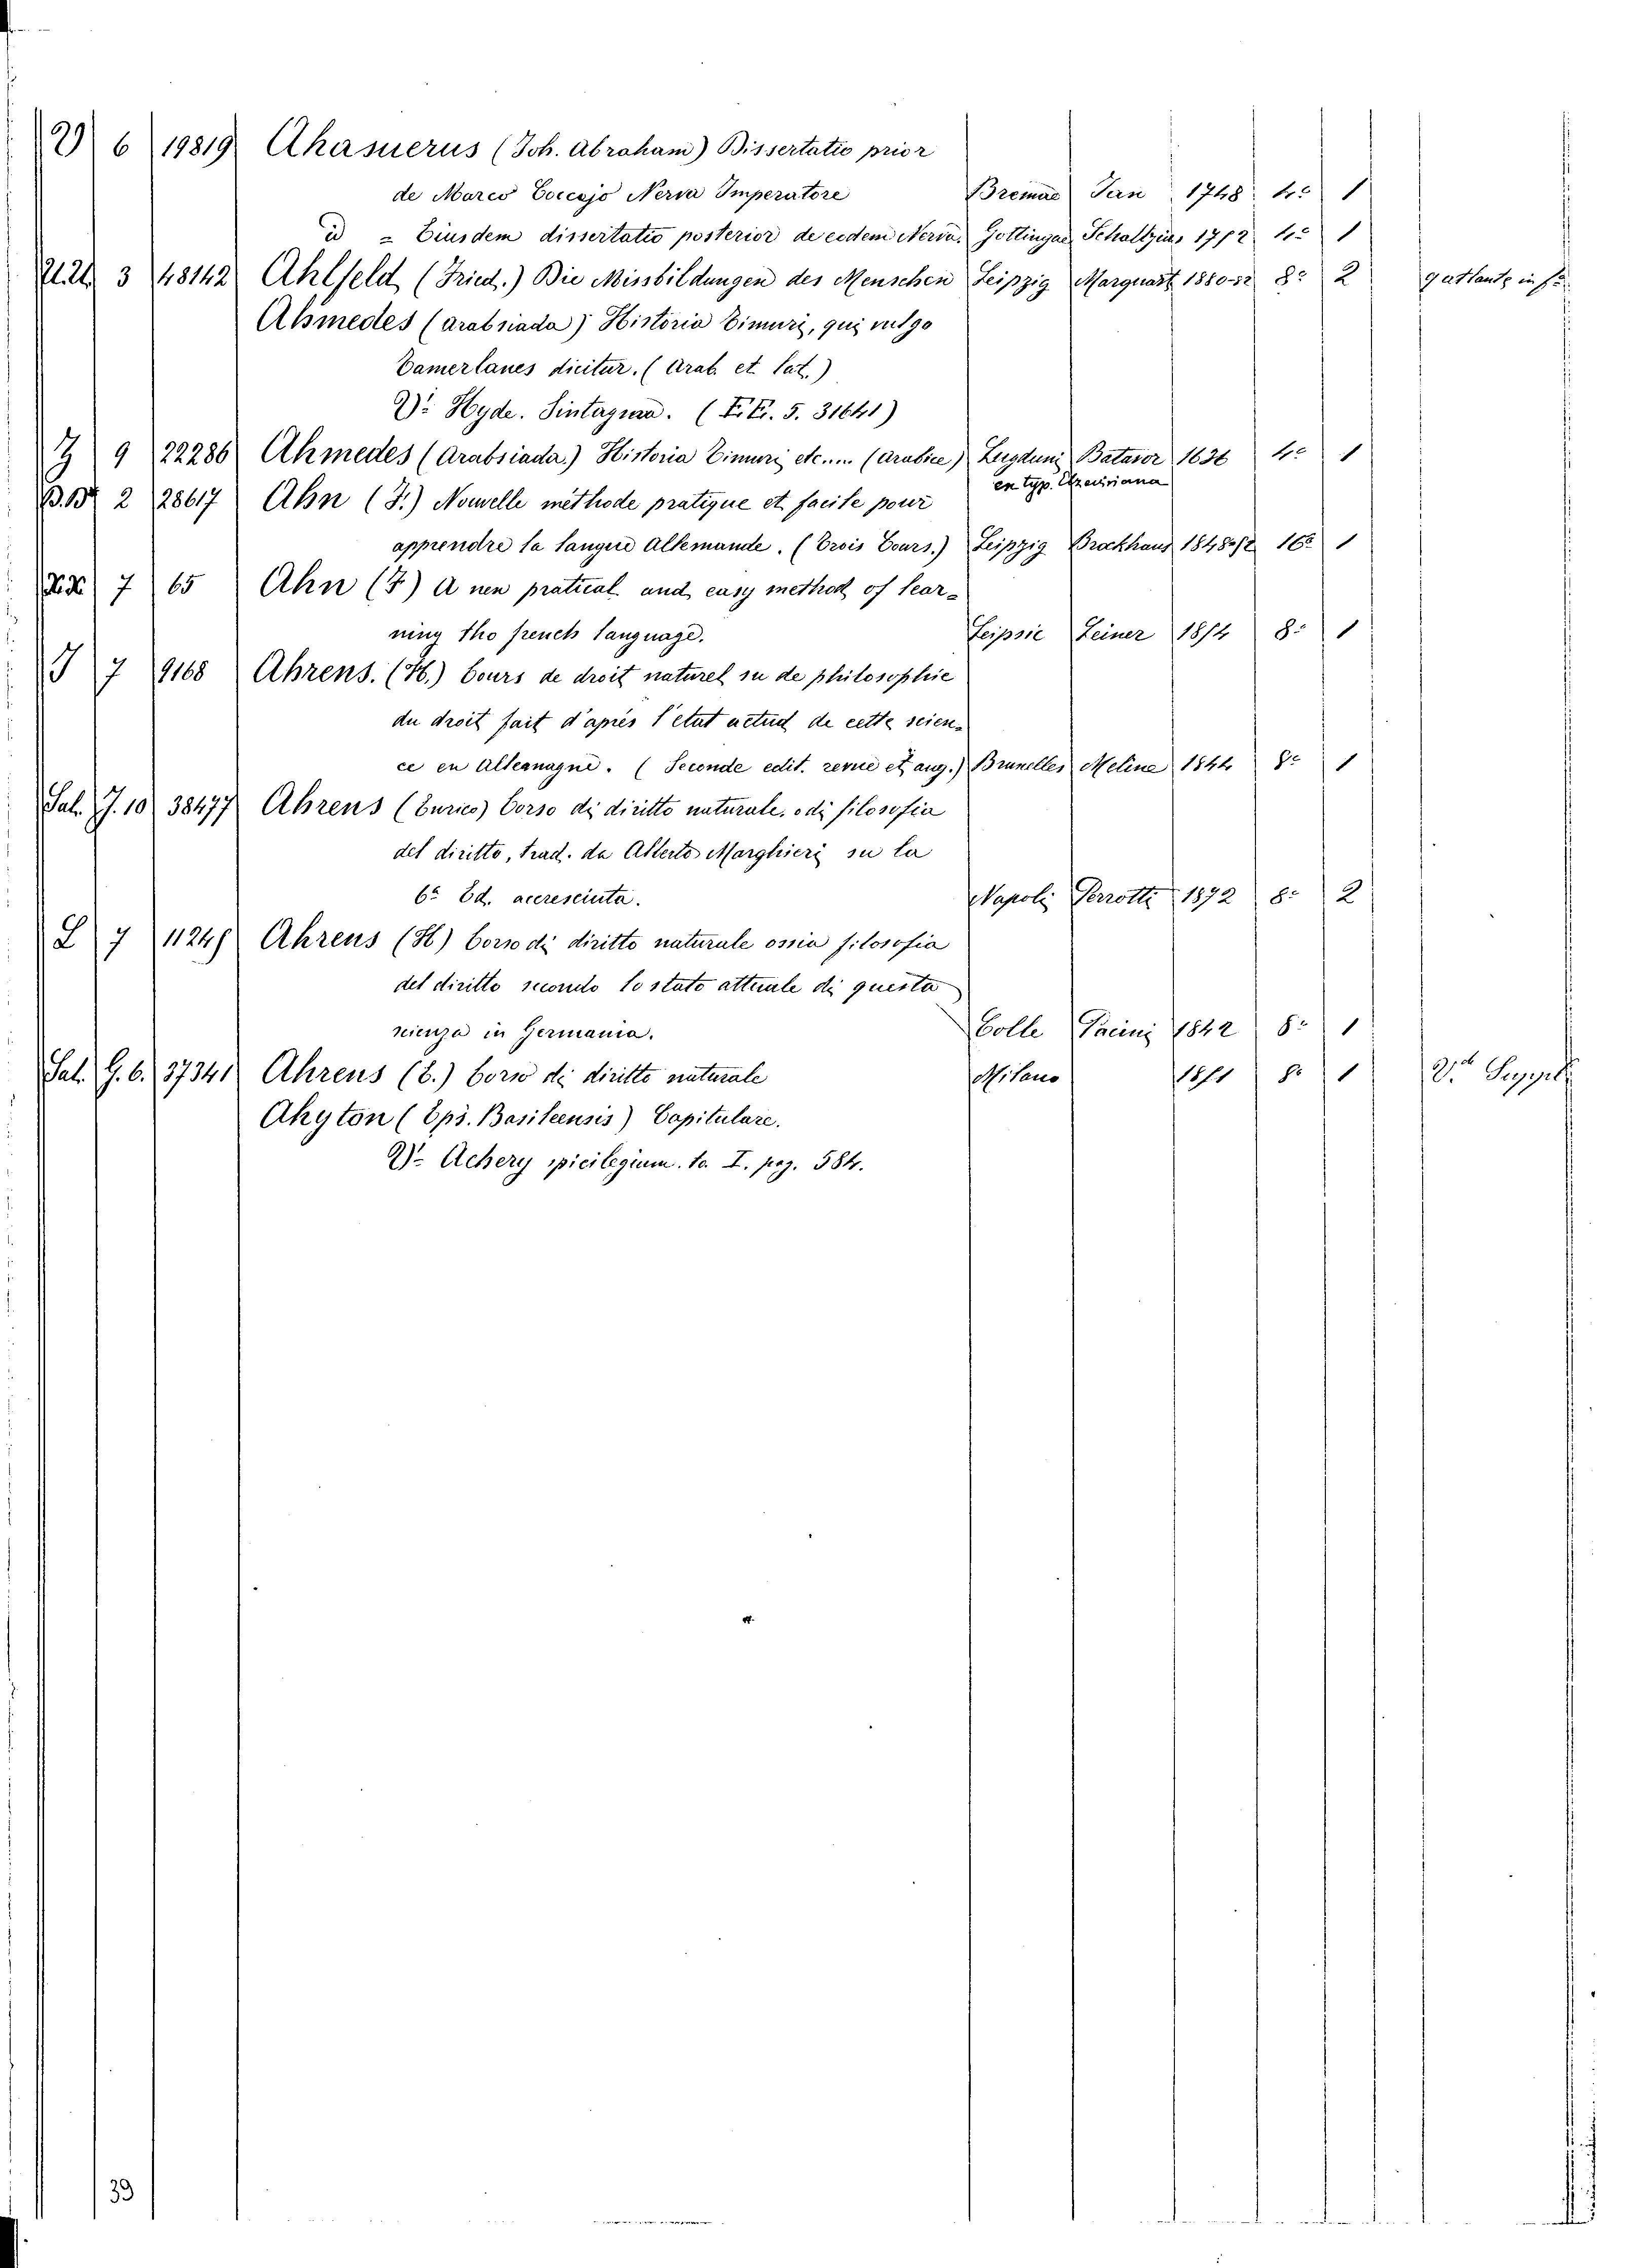 6 19819 Ahasuerus (Joh. Abraham) Dissertatio prior
de Marco Coccejo Nerva Imperatore Bremae Jan 1748 4º 1
id = Eiusdem dissertatio posterior de eidem Nerva. Gottingae Schultzius 1752 4º 1
3 48142 Ahlfeld (Fried.) Die Missbildungen des Menschen Leipzig Marquart 1880-82 8º 2 Jatlante in fº
Ahmedes (Arabsiada) Historia Timuri, qui vulgo
Tamerlanes dicitur. (Arab. et Lat.)
Vº Hyde. Sintagma. (F.F. 5. 31641)
Z 9 22286 Ahmedes (Arabsiada.) Historia Timuri etc.... (Arabice) Lugduni Batavor 1636 4º 1
ex typ. Elzeviriana
B.B. 2 28617 Ahn (F.) Nouvelle méthode pratique et facile pour
apprendre la langue Allemande. (Trois Cours.) Leipzig Brockhaus 1848-52 16º 1
X.X. 7 65 Ahn (F) A new pratical and easy method of lear-
ning the french language. Leipsic Leiner 1854 8º 1
J 7 9168 Ahrens. (H.) Cours de droit naturel su de philosophie
du droit fait d'aprés l'etat actuel de cette scien-
ce en Allemagne. (Seconde edit. revue et aug.) Bruxelles Meline 1844 8º 1
Sal. J. 10 38477 Ahrens (Enrico) Corso di diritto naturale, o di filosofia
del diritto, trad. da Alberto Marghieri su la
6ª Ed. accresciuta. Napoli Perrotti 1872 8º 2
L 7 11248 Ahrens (H) Corso di diritto naturale ossia filosofia
del diritto secondo lo stato attuale di questa
scienza in Germania. Colle Pacini 1842 8º 1
Sal. G. 6. 37341 Ahrens (E.) Corso di diritto naturale Milano 1851 8º 1 Vdi Suppl.
Ahyton (Eps. Basileensis) Capitulare.
Vº Achery spicilegium. to. I. pag. 584.
33